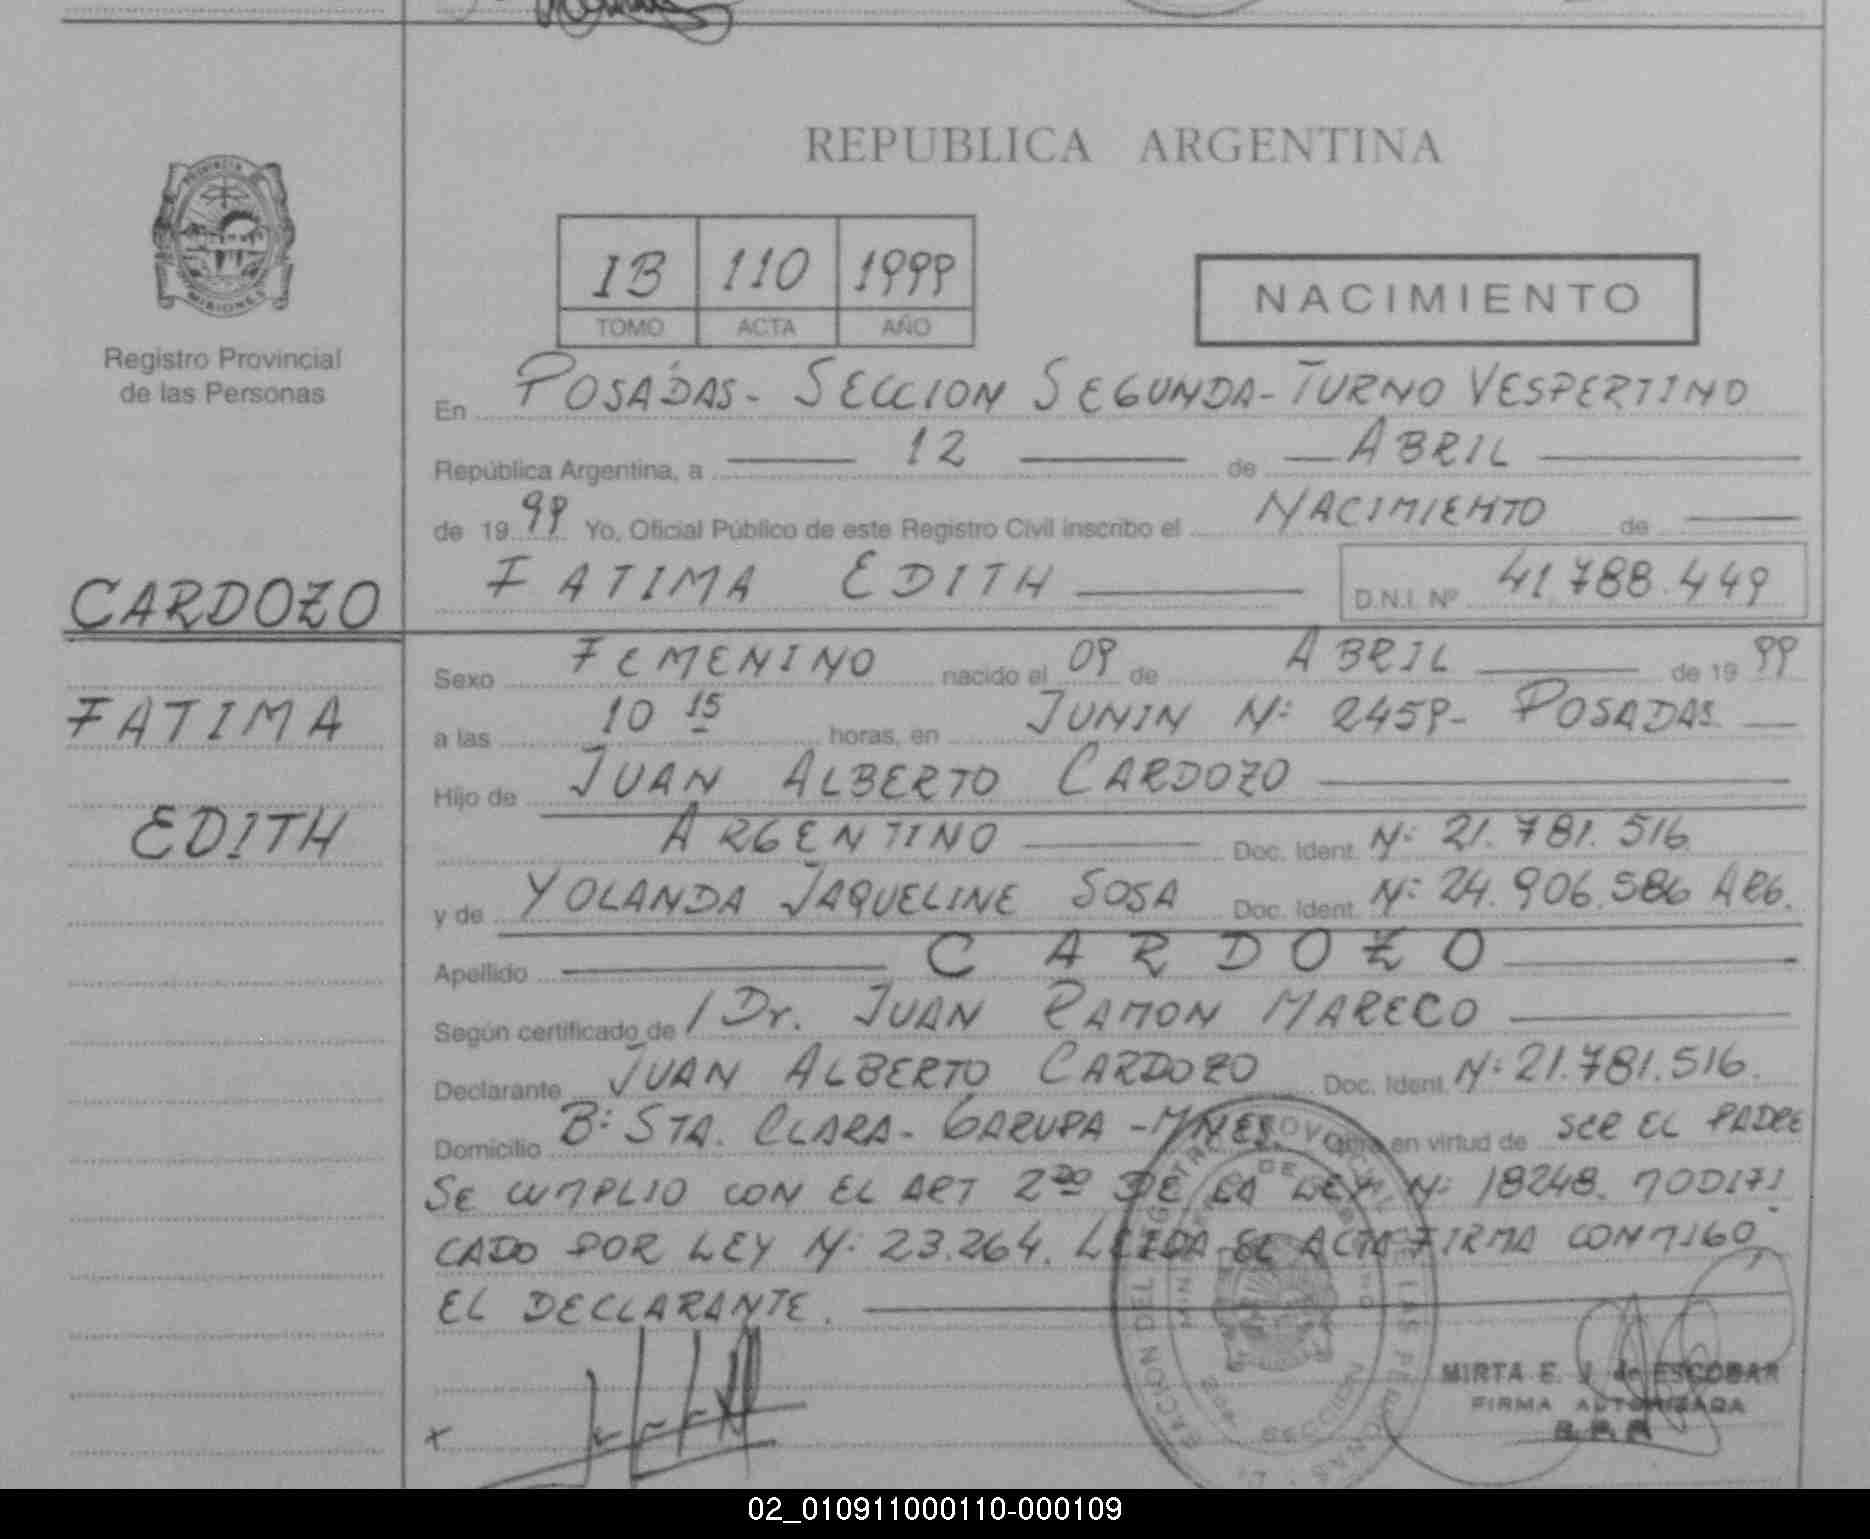 REPUBLICA ARGENTINA
PROVINCIA
MISIONES
Registro Provincial
de las Personas
IB 110 1999
TOMO ACTA AÑO
NACIMIENTO
En POSADAS - SECCION SEGUNDA - TURNO VESPERTINO
República Argentina, a 12 de ABRIL
de 1999 Yo, Oficial Público de este Registro Civil inscribo el NACIMIENTO de
FATIMA EDITH D.N.I. Nº 41.788.449
CARDOZO
FATIMA
EDITH
Sexo FEMENINO nacido el 09 de ABRIL de 1999
a las 10 15 horas, en JUNIN Nº 2459 - POSADAS
Hijo de JUAN ALBERTO CARDOZO
ARGENTINO Doc. Ident. Nº 21.781.516
y de YOLANDA JAQUELINE SOSA Doc. Ident. Nº 24.906.586 ARG.
Apellido CARDOZO
Según certificado de / Dr. JUAN RAMON MARECO
Declarante JUAN ALBERTO CARDOZO Doc. Ident. Nº 21.781.516.
Domicilio Bº STA. CLARA - GARUPA - MNES. Obra en virtud de SER EL PADRE
SE CUMPLIO CON EL ART 2DO DE LA LEY Nº 18248. MODIFI
CADO POR LEY Nº 23.264. LEIDA EL ACTA FIRMA CONMIGO
EL DECLARANTE.
MIRTA E. J. de ESCOBAR
FIRMA AUTORIZADA
02_010911000110-000109